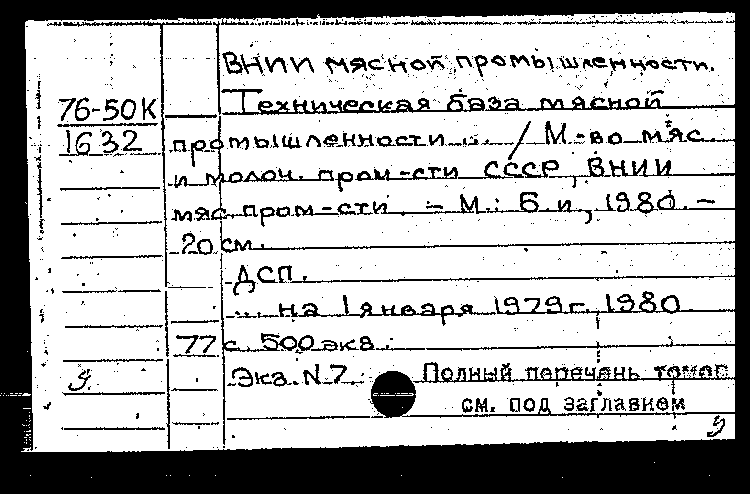 ВНИИ мясной промышленности.
76-50К Техническая база мясной
1632 промышленности ... / М-во мяс.
и молоч. пром-сти СССР, ВНИИ
мяс. пром-сти. - М.: Б. и., 1980. -
20 см.
ДСП.
... на 1 января 1979 г. 1980
77 с. 500 экз.
Экз. N 7 Полный перечень томов
см. под заглавием